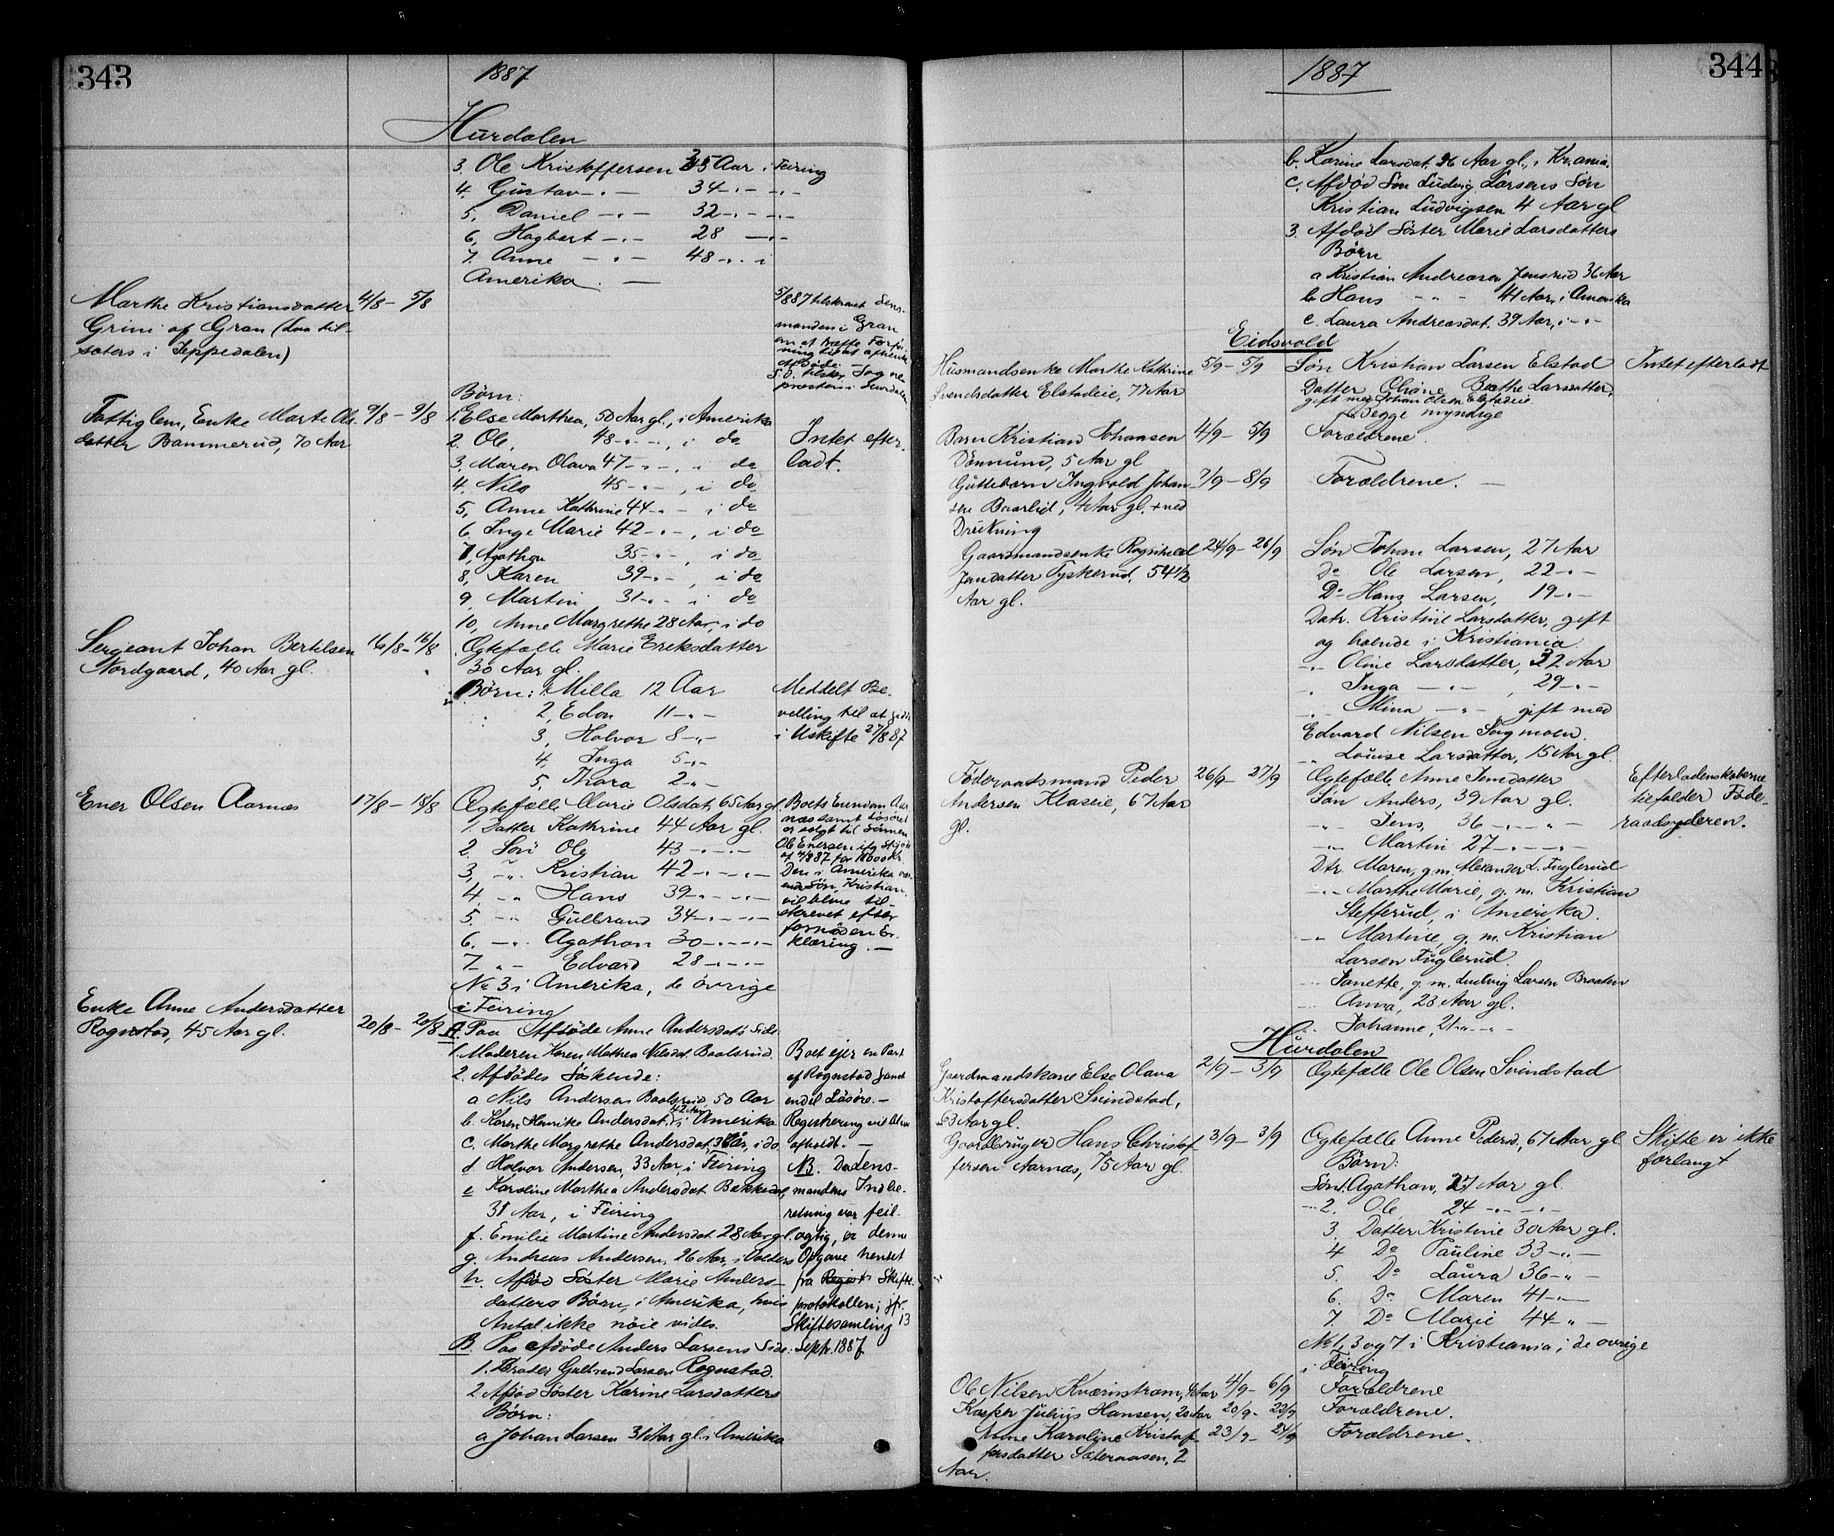 343
1887
Hurdalen
3. Ole Kristoffersen 35 Aar i Feiring
4. Gustav -"- 34 -"- -"-
5. Daniel -"- 32 -"- -"-
6. Hagbart -"- 28 -"-
7. Anne -"- 48 -"- i
Amerika. —
Marthe Kristiansdatter 4/8 - 5/8
Grini af Gran (Laa til
sæters i Teppedalen)
5/887 tilskrevet Lens-
manden i Gran
Børn:
Fattiglem, Enke Marte Ols- 9/8 - 9/8
datter Bammerud, 70 Aar
1. Else Marthea, 50 Aar gl., i Amerika
2. Ole, 48 -"- -, i do
3. Maren Olava 47 -"- -, i do
4. Nils 45 -"- -, i do
5. Anne Kathrine 44 -"- - i do
6. Inge Marie 42 -"- -, i do
7. Agathon 35 -"- -, i do
8. Karen 39 -"- -, i do
9. Martin 31 -"- - i do
10. Anne Margrethe 28 Aar, i do
Intet efter-
ladt.
Sergeant Johan Bertilsen 16/8 - 16/8
Nordgaard, 40 Aar gl.
Ægtefælle Marie Eriksdatter
30 Aar gl.
Børn: 1. Milla 12 Aar
2, Edon 11 -"-
3, Halvor 8 -"-
4, Inga 5 -"-
5, Thora 2 -"-
Meddelt Be-
villing til at sidde
i Uskifte 27/8 87
Ener Olsen Aarnæs 17/8 - 18/8
Ægtefælle Marie Olsdat, 65 Aar gl.
1. Datter Kathrine 44 Aar gl.
2. Søn Ole 43 -"- -"-
3, -"- Kristian 42 -"- -"-
4, -"- Hans 39 -"- -"-
5. -"- Gulbrand 34 -"- -"-
6. -"- Agathon 30 -"- -"-
7 -"- Edvard 28 -"- -"-
No 3 i Amerika, de övrige
i Feiring
Boets Eiendom Aar-
næs samt Løsøret
er solgt til Sønnen
Ole Enersen ifg Skjøde
Den i Amerika vær-
ende Søn, Kristian,
vil blive til-
skrevet efter
fornøden Er-
klæring. —
Enke Anne Andersdatter
Rognstad, 45 Aar gl. 20/8 - 20/8
A. Paa Afdøde Anne Andersdats Side
1. Moderen Karen Mathea Nilsdat. Baalsrud
2. Afdødes Söskende:
a Nils Andersen Baalsrud, 50 Aar
b. Karen Henrike Andersdat, 42 Aar, i Amerika
c. Marthe Margrethe Andersdat, 38 Aar, i do
d Halvor Andersen, 33 Aar, i Feiring
e Karoline Marthea Andersdat Bakkedal,
31 Aar, i Feiring
f. Emilie Martine Andersdat. 28 Aar gl.
g. Andreas Andersen, 26 Aar, i Odalen
h. Afdød Söster Marie Anders-
datters Börn, i Amerika, hvis
Antal ikke nöie vides.
B. Paa Afdøde Anders Larsens Side:
1. Broder Gulbrand Larsen Rognstad
2 Afdød Söster Karine Larsdatters
Börn:
a Johan Larsen 31 Aar gl. i Amerika
Boet ejer en Part
af Rognstad samt
endel Løsöre. —
Registrering vil blive
afholdt. —
NB. Da Lens-
mandens Indbe-
retning var feil-
agtig, er denne
Opgave hentet
fra Skifte-
protokollen; jfr.
Skiftesamling 13
Septr. 1887
344
1887
b. Karine Larsdat. 26 Aar gl., i Kr.ania
c. Afdød Søn Ludvig Larsens Søn
Kristian Ludvigsen 4 Aar gl
3. Afdød Söster Marie Larsdatters
Börn
a Kristian Andreasen Jensrud 36 Aar
b. Hans -"- - 41 Aar, i Amerika
c. Laura Andreasdat. 39 Aar, i -"-
Eidsvold
Husmandsenke Marthe Kathrine 5/9 - 5/9
Svendsdatter Elstadeie, 77 Aar
Søn Kristian Larsen Elstad
Datter Oliane Bæthe Larsdatter,
gift med Johan Olsen Elstadeie
Begge myndige
Intet efterladt
Barn Kristian Johansen 4/9 - 5/9
Dönnum, 5 Aar gl
Forældrene.
Guttebarn Ingvald Johan- 7/9 - 8/9
sen Baarlid, 4 Aar gl. + ved
Drukning
Forældrene. —
Gaardmandsenke Ragnhild 24/9 - 26/9
Jensdatter Tyskerud, 54 1/2
Aar gl.
Søn Johan Larsen, 27 Aar
Do Ole Larsen, 22 -"-
Do Hans Larsen, 19 -"-
Datr. Kristine Larsdatter, gift
og boende i Kristiania
-"- Oline Larsdatter, 32 Aar
-"- Inga -"- , 29 -"-
-"- Mina -"- , gift med
Edvard Nilsen Sagmoen.
-"- Louise Larsdatter, 15 Aar gl.
Föderaadsmand Peder 26/9 - 27/9
Andersen Klaseie, 67 Aar
gl.
Ægtefælle Anne Jensdatter
Søn Anders, 39 Aar gl.
-"- Jens, 36 -"- -"-
-"- Martin 27 -"- -"-
Dtr. Maren, g.m. Alexander L. Fuglerud
-"- Marthe Marie, g. m. Kristian
Stefferud, i Amerika.
-"- Martine, g. m. Kristian
Larsen Fuglerud.
-"- Janette, g. m. Ludvig Larsen Braaten
-"- Anna, 23 Aar gl.
-"- Johanne, 21 -"- -"-
Efterladenskaberne
tilfalder Föde-
raadsyderen.
Hurdalen
Gaardmandskone Else Olava 2/9 - 3/9
Kristoffersdatter Svindstad,
63 Aar gl.
Ægtefælle Ole Olsen Svindstad
Gaardbruger Hans Christof- 3/9 - 3/9
fersen Aarnæs, 75 Aar gl.
Ægtefælle Anne Pedersd, 67 Aar gl
Börn:
Søn 1. Agathon, 27 Aar gl.
-"- 2. Ole 24 -"- -"-
3. Datter Kristine 30 Aar gl.
4 Do Pauline 33 -"-
5. Do Laura 36 -"-
6. Do Maren 41 -"-
7. Do Marie 44 -"-
No 1, 3 og 7 i Kristiania; de övrige
i Feiring
Skifte er ikke
forlangt
Ole Nilsen Kværnstrøm, 9 Aar 4/9 - 6/9 Forældrene
Kasper Julius Hansen, 20 Aar 20/9 - 22/9 Forældrene.
Anne Karoline Kristof- 23/9 - 24/9 Forældrene.
fersdatter Sæteraasen, 2
Aar.